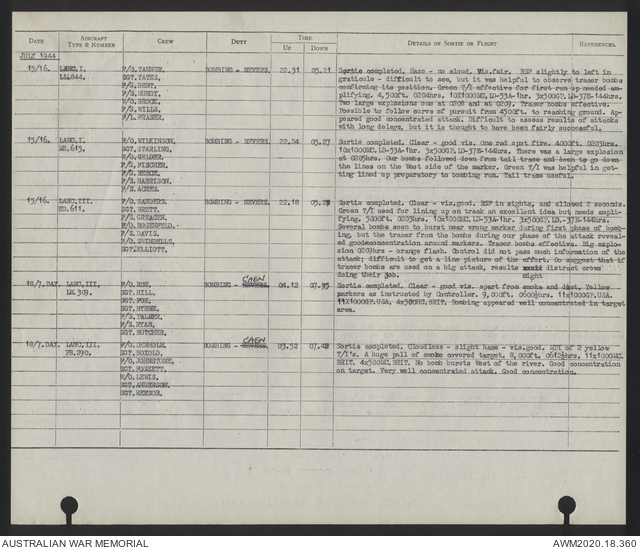 DATE AIRCRAFT TYPE & NUMBER CREW DUTY TIME UP DOWN DETAILS OF SORTIE OR FLIGHT REFERENCES.
JULY 1944
15/16. LANC.I. LL.844. BOMBING - NEVERS. 22.31 05.21
F/O. TANNER.
SGT. YATES.
F/S. DENT.
F/S. HENDY.
W/O. BROCK.
F/S. WILLS.
F/L. FRASER.
Sortie completed. Haze - no cloud. Vis.fair. RSF slightly to left in
graticule - difficult to see, but it was helpful to observe tracer bombs
confirming its position. Green T/I effective for first run up needed am-
plifying. 4,500ft. 0204hrs. 10X1000MC.LD-53A-1hr. 3x500GP.LD-37B-144hrs.
Two large explosions one at 0208 and at 0209. Tracer bombs effective.
Possible to follow curve of pursuit from 4500ft. to reaching ground. Ap-
peared good concentrated attack. Difficult to assess results of attacks
with long delays, but it is thought to have been fairly successful.
15/16. LANC.I. ME.615. BOMBING - NEVERS. 22.24 05.27
F/O. WILKINSON.
SGT. STARLING.
W/O. GELDER.
F/S. FISCHER.
F/S. REECE.
F/S. HARRISON.
F/S. ACRES.
Sortie completed. Clear - good vis. One red spot fire. 4000ft. 0203hrs.
10x1000MC.LD-53A-1hr. 3x500GP.LD-37B-144hrs. There was a large explosion
at 0205hrs. Our bombs followed down from tail trace and seen to go down
the lines on the West side of the marker. Green T/I was helpful in get-
ting lined up preparatory to bombing run. Tail trace useful.
15/16. LANC.III. ED.611. BOMBING - NEVERS. 22.18
F/O. SANDERS.
SGT. BRETT.
F/S. GREACEN.
F/O. ROSENFELD.
F/S. DAVIS.
F/O. SWINDELLS.
SGT. ELLIOTT.
Sortie completed. Clear - vis.good. RSF in sights, and allowed 2 seconds.
Green T/I used for lining up on track an excellent idea but needs ampli-
fying. 5000ft. 0203hrs. 10X1000MC.LD-53A-1hr. 3X500GP.LD-37B-144hrs.
Several bombs seen to burst near wrong marker during first phase of bomb-
ing, but the tracer from the bombs during our phase of the attack reveal-
ed goodconcentration around markers. Tracer bombs effective. Big explo-
sion 0209hrs - orange flash. Control did not pass much information of the
attack; difficult to get a line picture of the effort. Do suggest that if
tracer bombs are used on a big attack, results might distract crews
doing their job.
18/7.DAY. LANC.III. LM.309. BOMBING - NEVERS. CAEN 04.12
F/O. ROE.
SGT. HILL.
SGT. FOX.
SGT. BYRNE.
F/S. PALMER.
F/S. RYAN.
SGT. BUTCHER.
Sortie completed. Clear - good vis. apart from smoke and dust. Yellow
markers as instructed by Controller. 9,000ft. 0600½hrs. 11x1000GP.USA.
11X1000GP.USA. 4x500MC.BRIT. Bombing appeared well concentrated in target
area.
18/7.DAY. LANC.III. PB.290. BOMBING - NEVERS. CAEN 03.52
F/O. DENHOLM.
SGT. BOXOLD.
F/O. JOHNSTONE.
SGT. FOSSETT.
W/O. LEWIS.
SGT. ANDERSON.
SGT. REESOR.
Sortie completed. Cloudless - slight haze - vis.good. MPI of 2 yellow
T/I's. A huge pall of smoke covered target. 8,000ft. 0612½hrs. 11x1000MC.
BRIT. 4x500MC.BRIT. No bomb bursts West of the river. Good concentration
on target. Very well concentrated attack. Good concentration.
AUSTRALIAN WAR MEMORIAL AWM2020.18.360